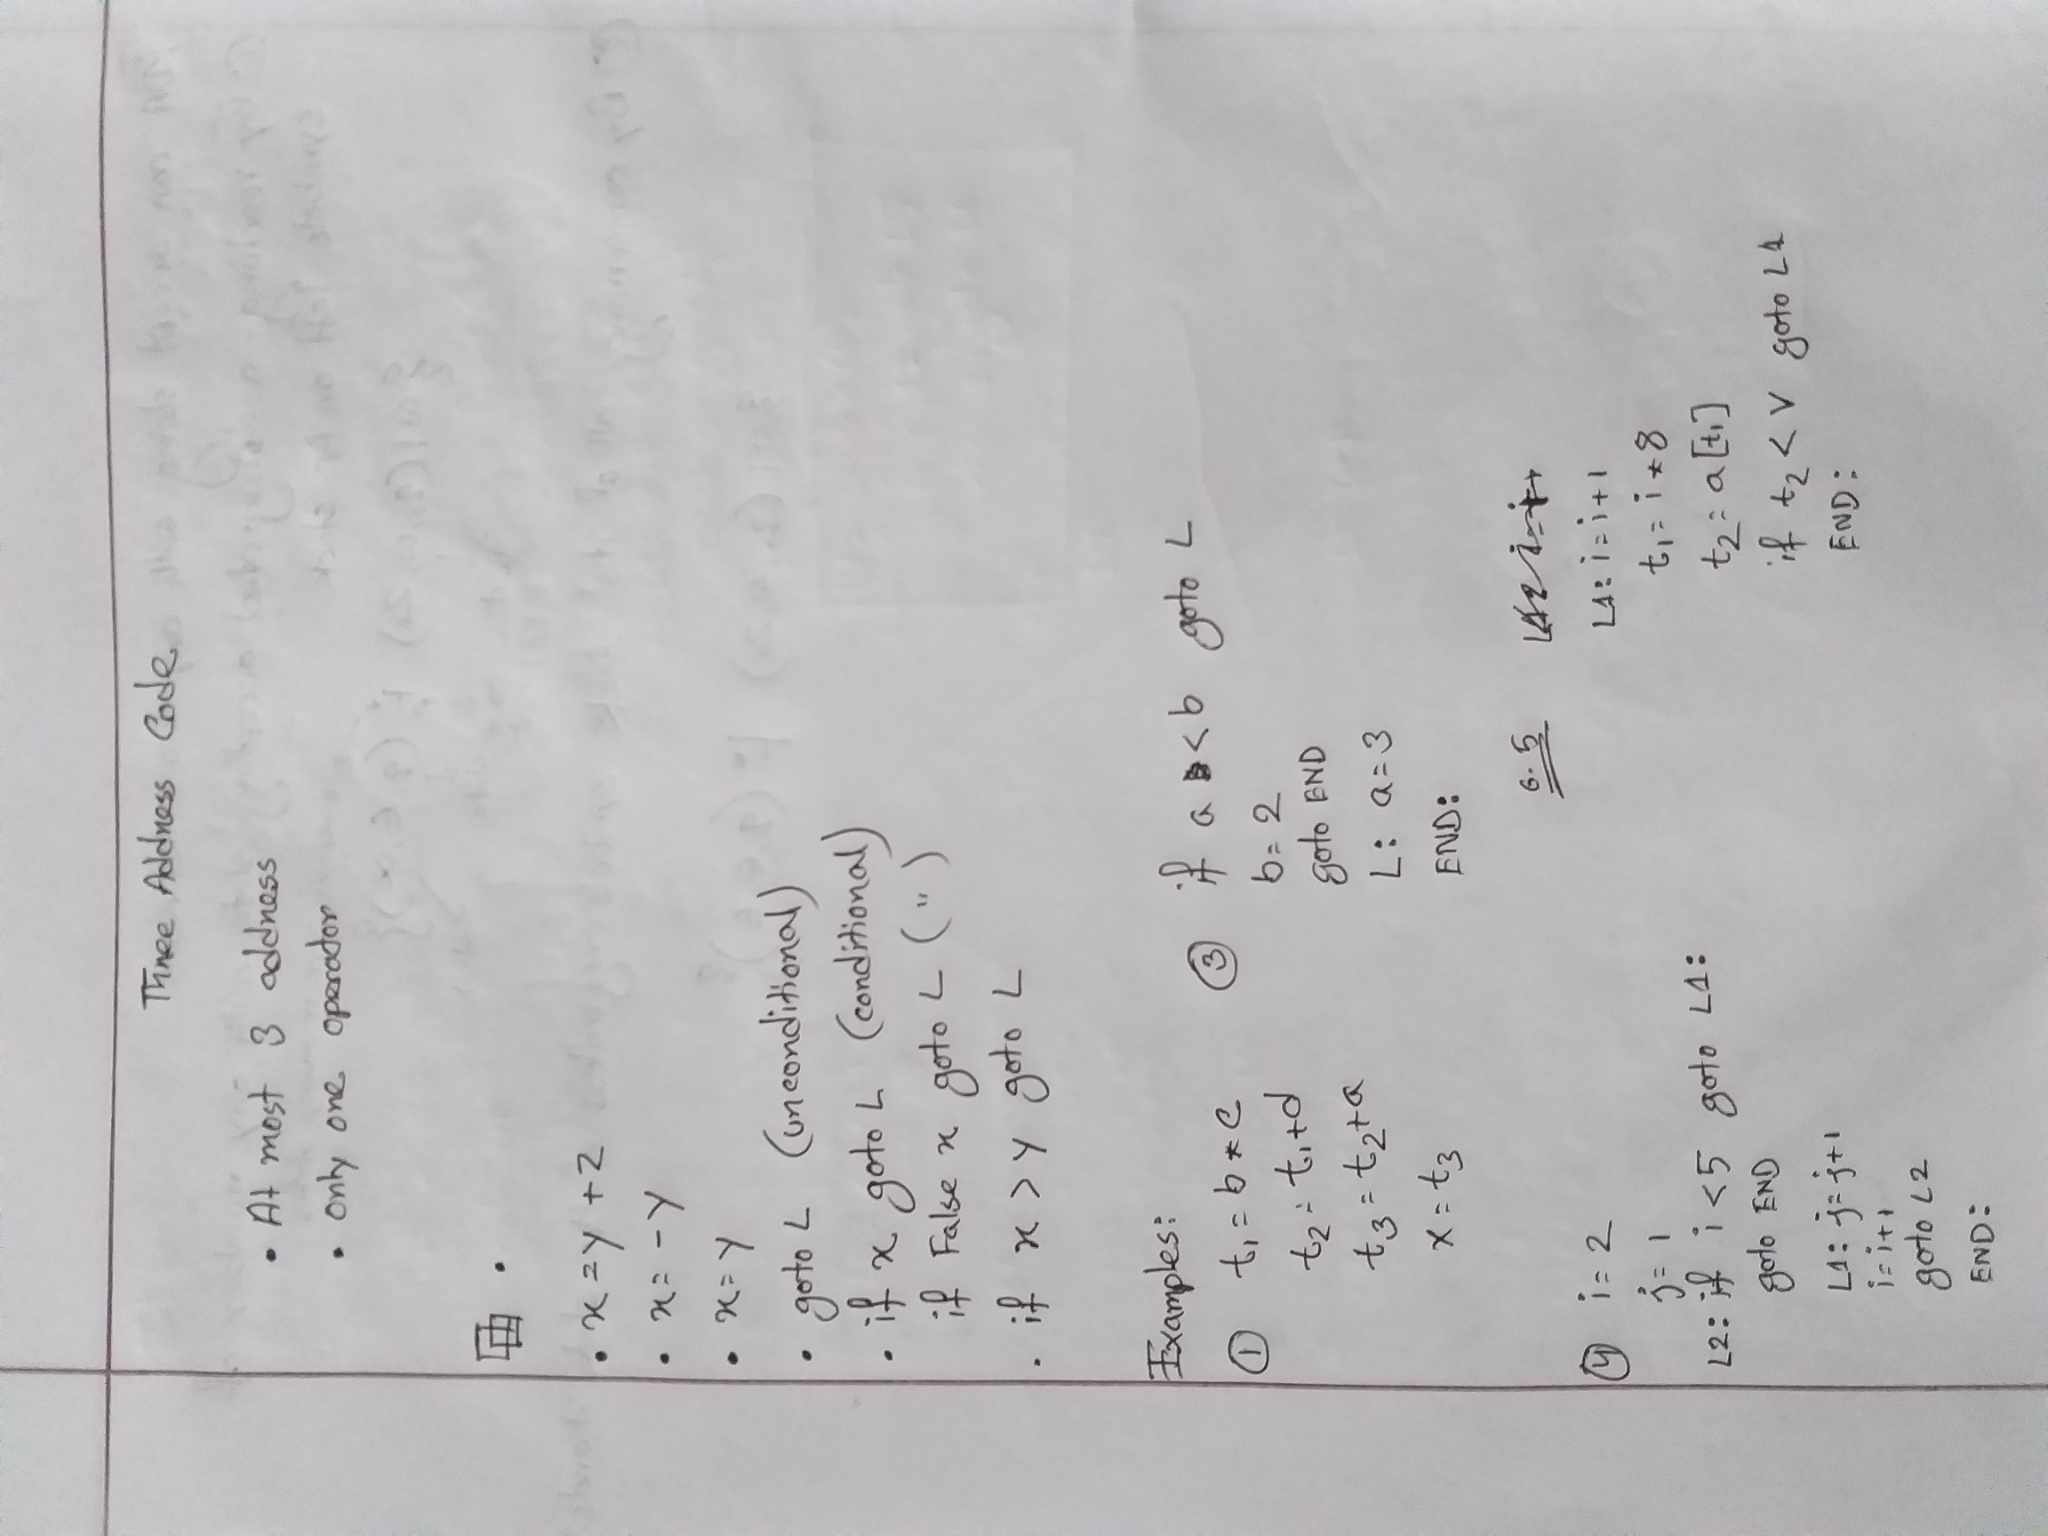 Three Address Code
• At most 3 address
• only one operator
•
• x = y + z
• x = - y
• x = y
• goto L (unconditional)
• if x goto L (conditional)
if False x goto L ( " )
• if x > y goto L
Examples:
① t₁ = b * c
t₂ = t₁ + d
t₃ = t₂ + a
x = t₃
③ if a < b goto L
b = 2
goto END
L: a = 3
END:
④ i = 2
j = 1
L2: if i < 5 goto L1:
goto END
L1: j = j + 1
i = i + 1
goto L2
END:
6.5
L1: i = i + 1
t₁ = i * 8
t₂ = a [t₁]
if t₂ < v goto L1
END: